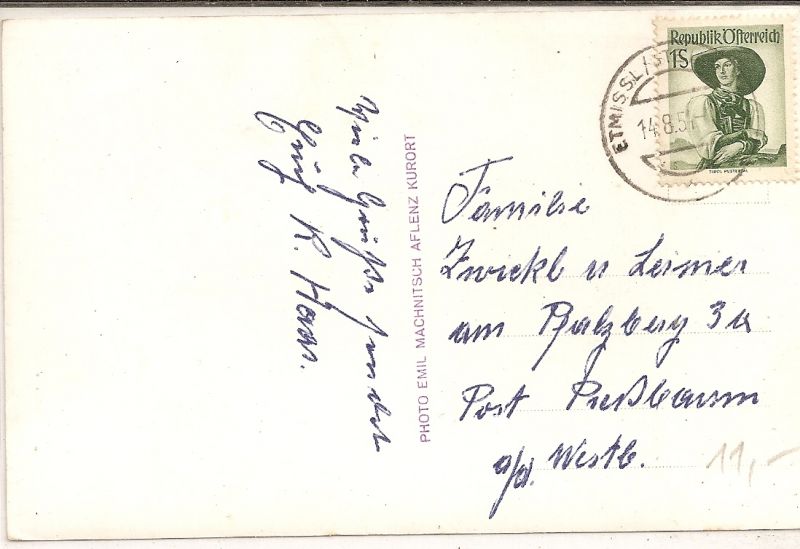 Republik Österreich
1S
TIROL PUSTERTAL
ETMISSL/ST
14.8.5
Viele Grüße sendet
R. Haas.
PHOTO EMIL MACHNITSCH AFLENZ KURORT
Familie
Zwickl u Leimer
am Pfalzberg 3a
Post Preßbaum
a/d. Westb.
11,-